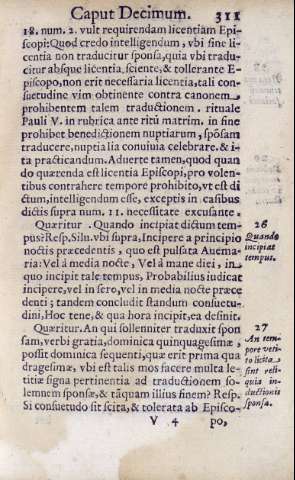 Caput Decimum. 311
18. num. 2. vult requirendam licentiam Epi-
scopi: Quod credo intelligendum, vbi sine li-
centia non traducitur sponsa, quia vbi tradu-
citur absque licentia, sciente, & tollerante E-
piscopo, non erit necessaria licentia, tali con-
suetudine vim obtinente contra canonem
prohibentem talem traductionem. rituale
Pauli V. in rubrica ante ritũ matrim. in fine
prohibet benedictionem nuptiarum, spõsam
traducere, nuptialia conuiuia celebrare. & i-
ta practicandum. Aduerte tamen, quod quan
do quærenda est licentia Episcopi, pro volen-
tibus contrahere tempore prohibito, vt est di
ctum, intelligendum esse, exceptis in casibus
dictis supra num. 11. necessitate excusante.
Quæritur. Quando incipiat dictum tem-
pus? Resp. Silu. vbi supra, Incipere a principio
noctis præcedentis, quo est pulsata Auema-
ria: Vel á media nocte, Vel á mane diei, in
quo incipit tale tempus, Probabilius iudicat
incipere, vel in sero, vel in media nocte præce
denti; tandem concludit standum consuetu-
dini, Hoc tene, & qua hora incipit, ea desinit.
26
Quando
incipiat
tempus.
Quæritur. An qui sollenniter traduxit spon
sam, verbi gratia, dominica quinquagesimæ,
possit dominica sequenti, quæ erit prima qua
dragesimæ, vbi est talis mos facere multa le-
titiæ signa pertinentia ad traductionem so-
lemnem sponsæ, & tãquam illius finem? Resp.
Si consuetudo sit scita, & tolerata ab Episco-
27
An tem-
pore veri-
to licita,
sint reli-
quia in-
ductionis
sponsæ.
V 4 po,